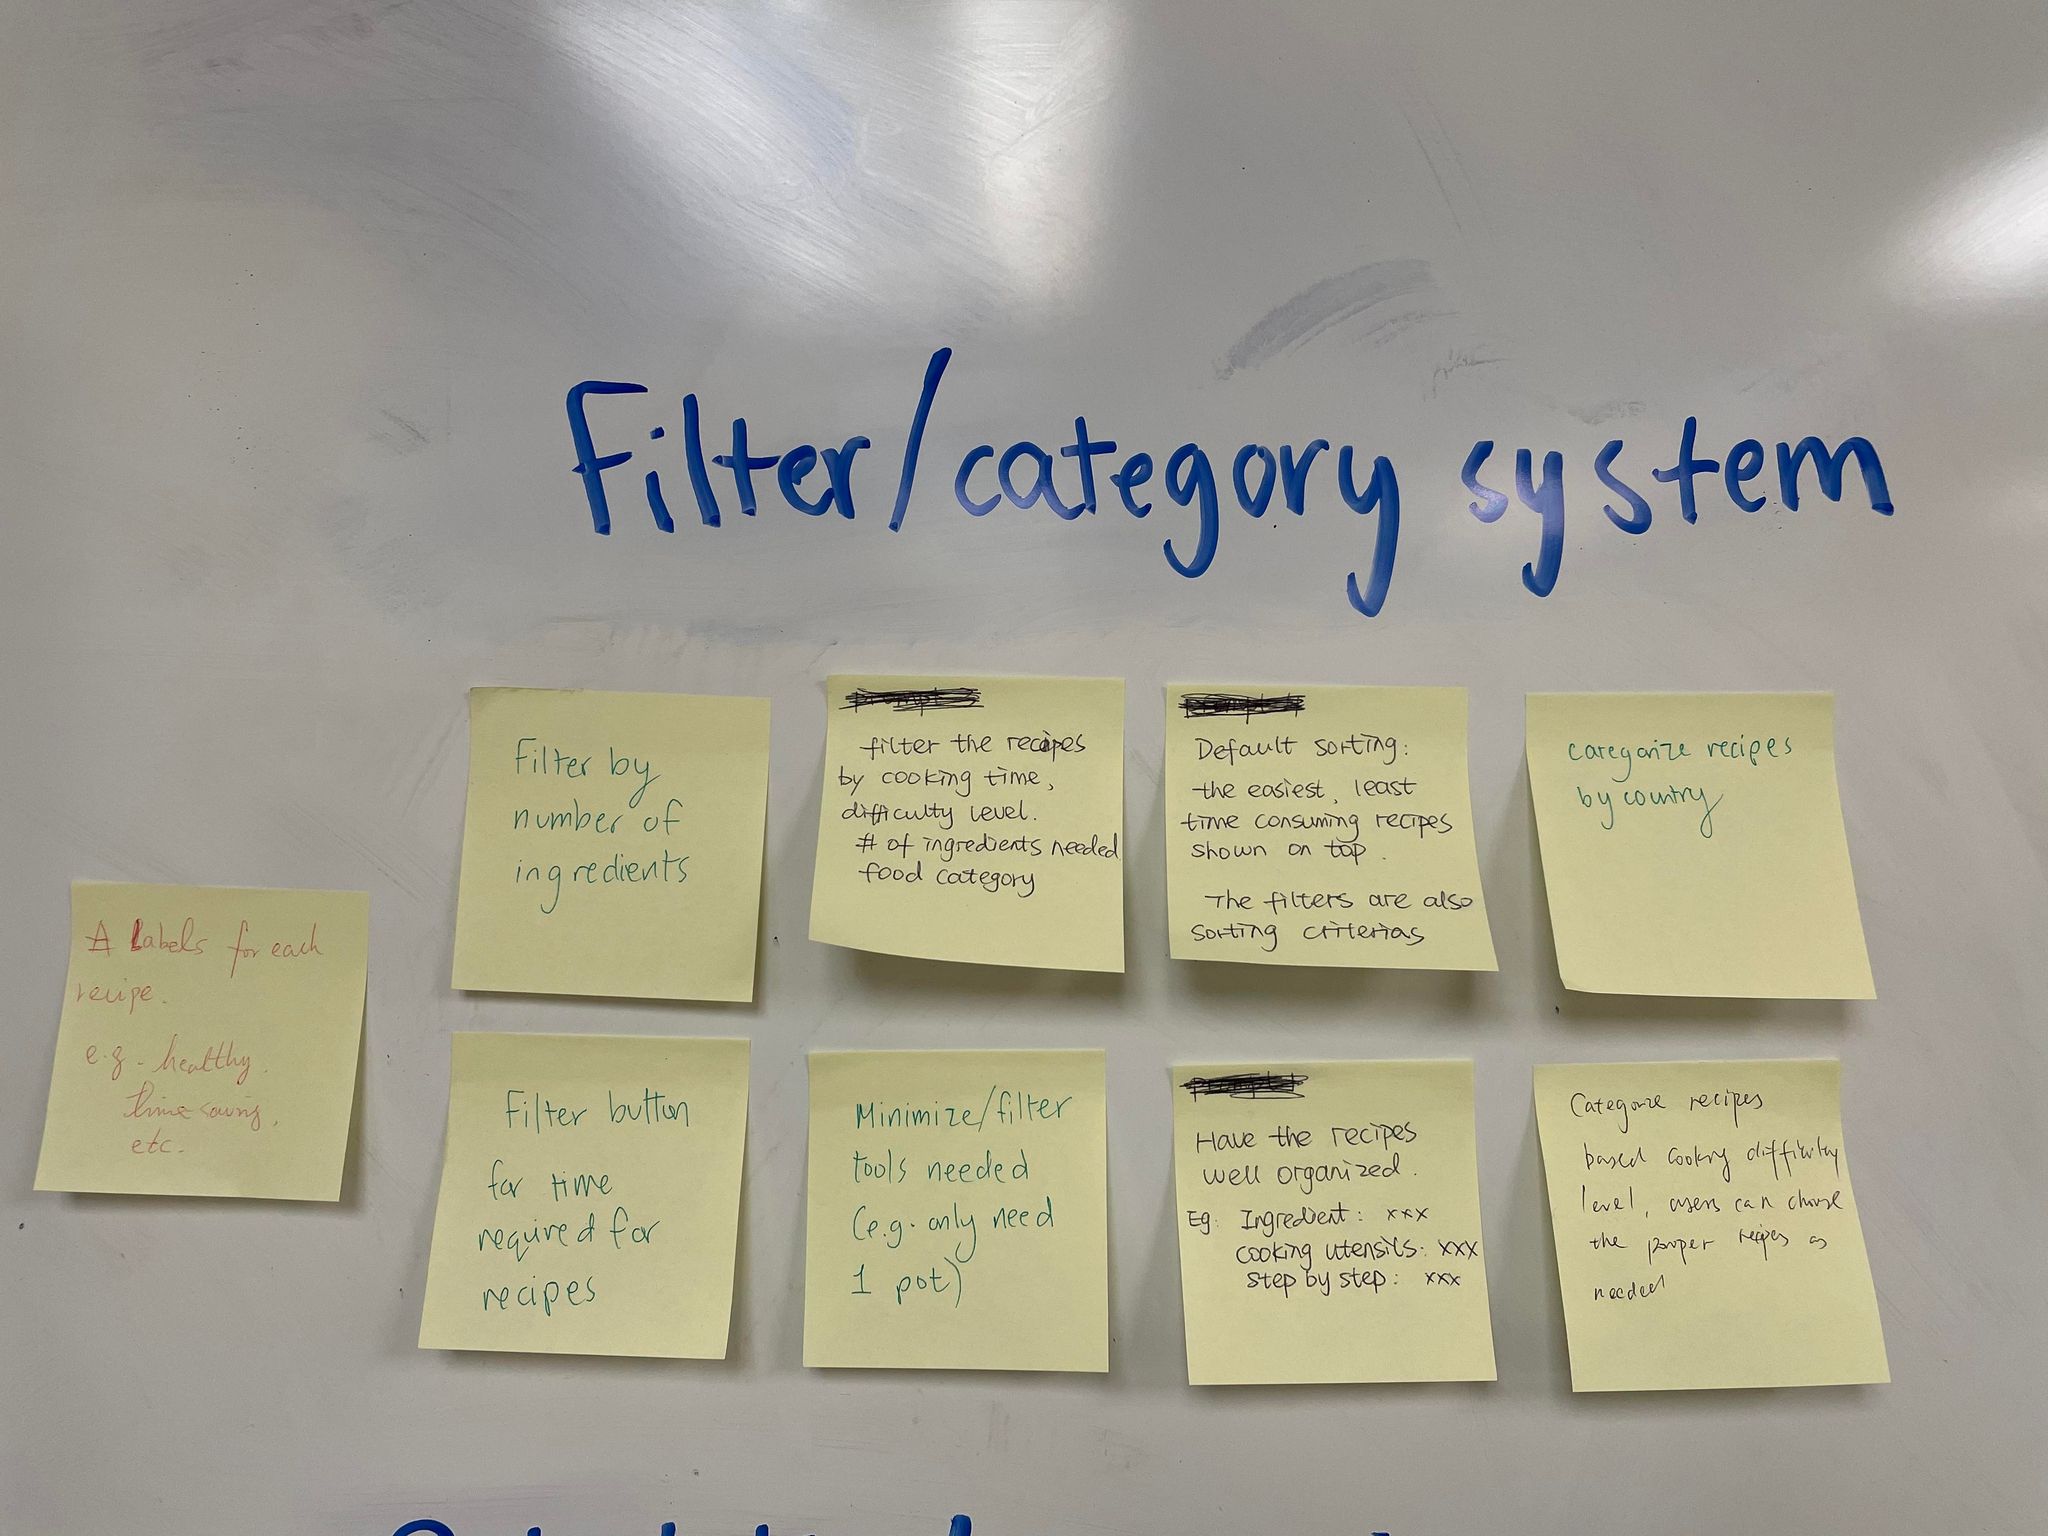 Filter/category system
Filter by
number of
ingredients
filter the recipes
by cooking time,
difficulty level.
# of ingredients needed
food category
Default sorting:
the easiest, least
time consuming recipes
shown on top.
The filters are also
sorting criterias
categorize recipes
by country
A Labels for each
recipe.
e.g. healthy.
time saving,
etc.
Filter button
for time
required for
recipes
Minimize/filter
tools needed
(e.g. only need
1 pot)
Have the recipes
well organized.
Eg: Ingredient: xxx
cooking utensils: xxx
step by step: xxx
Categorize recipes
based cooking difficulty
level, users can choose
the proper recipes as
needed